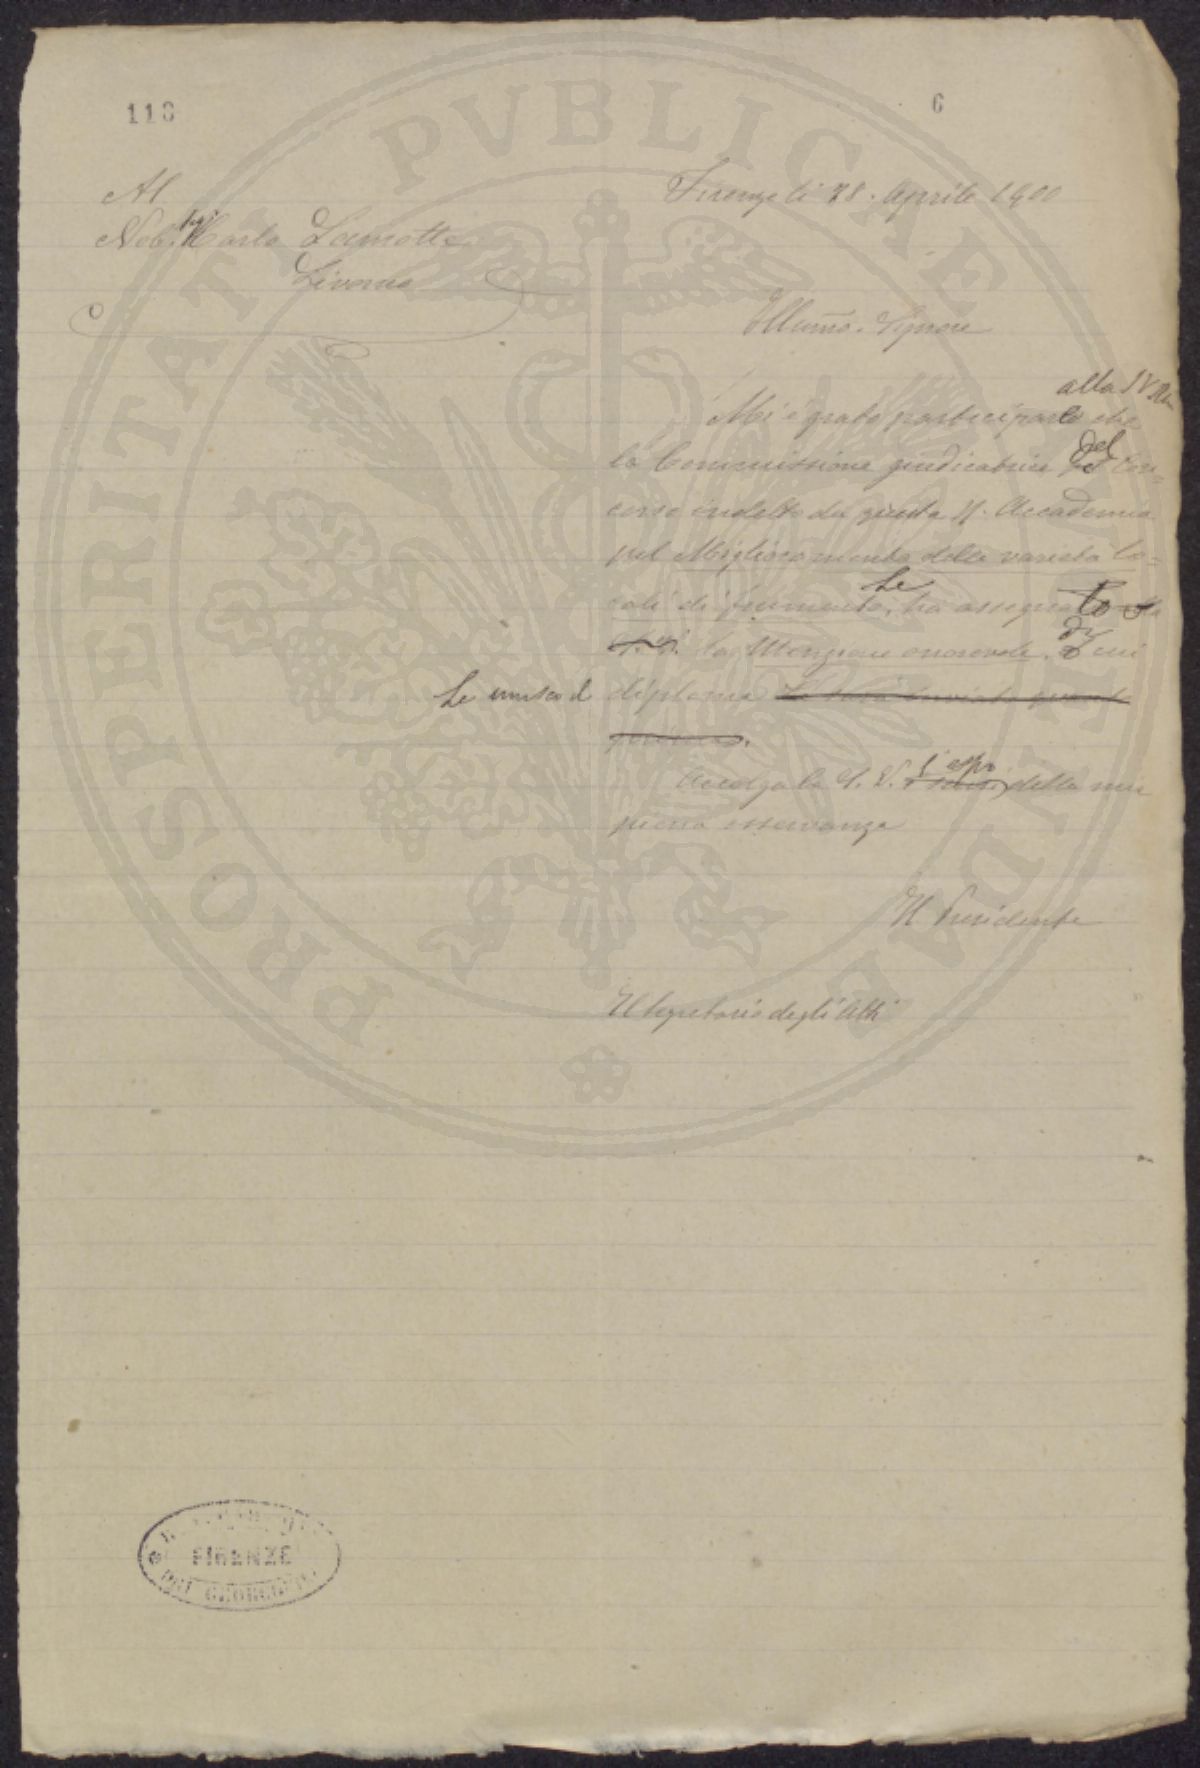 110
6
Al
Nob. Sig. Carlo Lamotte
Livorno
Firenze li 28. Aprile 1900
Illumo. Signore
alla S V Illma
Mi è grato partecipare che
la Commissione giudicatrice del Con-
corso indetto da questa R. Accademia
pel Miglioramento delle varietà lo-
cali di frumento, Le ha assegnato alla
S. V. la Menzione onorevole, di cui
Le unisco il diploma
Accolga la S. V. della mia
piena osservanza
Il Presidente
Il Segretario degli Atti
FIRENZE
DEI GEORGOFILI
PROSPERITATI PVBLICAE AVGENDAE